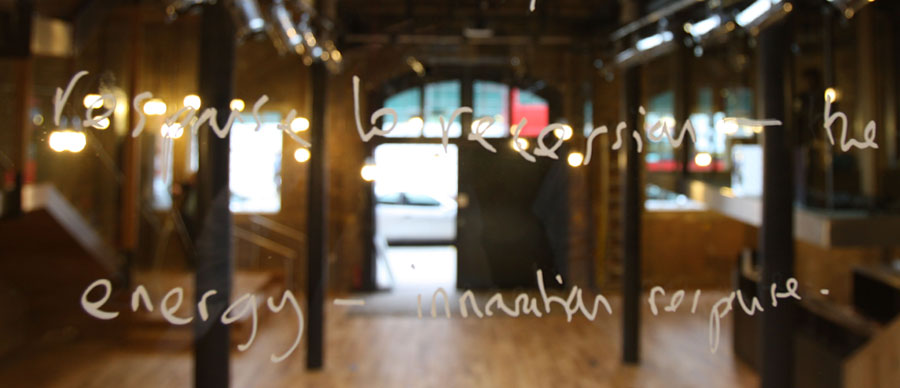 response to recession — the
energy — innovation response.